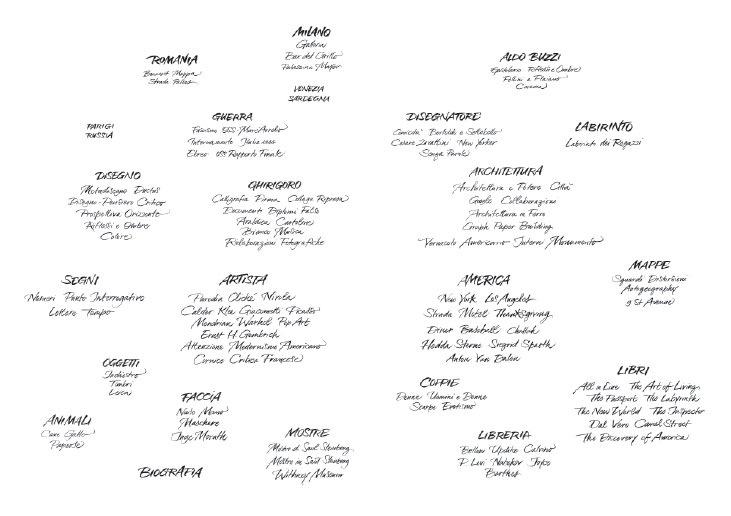 MILANO
Galleria
Bar del Grillo
ROMANIA
Bucarest Mappa
Strada Pallas
VENEZIA
SARDEGNA
ALDO BUZZI
Epistolario Riflessi e Ombre
Cinema
PARIGI
RUSSIA
GUERRA
Fascismo OSS
Internamento Italia
Ebreo OSS Rapporto Finale
DISEGNATORE
Bertoldo e Settebello
Cesare Zavattini New Yorker
Senza Parole
LABIRINTO
Labirinto dei Ragazzi
DISEGNO
Metadisegno Ductus
Disegno-Pensiero Critico
Prospettiva Orizzonte
Riflessi e Ombre
Colore
GHIRIGORO
Calligrafia Firma Collage Ripresa
Documenti Diplomi Falso
Araldica Cartoline
Bianco Musica
Rielaborazioni Fotografiche
ARCHITETTURA
Architettura e Potere Città
Guado Collaborazioni
Architettura e Ferro
Graph Paper Building
Vernacolo Americano Interni Monumento
MAPPE
Sguardi Distorsioni
Autogeography
9 St Avenue
SEGNI
Numeri Punto Interrogativo
Lettere Tempo
ARTISTA
Parodia Cliché Nivola
Calder Klee Giacometti Picasso
Mondrian Warhol Pop Art
Ernst H Gombrich
Attenzione Modernismo Americano
Comico Critica Francese
AMERICA
New York Los Angeles
Strada Motel Thanksgiving
Diner Baseball
Hedda Sterne Sigrid Spaeth
Anton Van Dalen
OGGETTI
Inchiostro
Timbri
LIBRI
All in Line The Art of Living
The Passport The Labyrinth
The New World The Inspector
Dal Vero Canal Street
The Discovery of America
COPPIE
Donne Uomini e Donne
Scarpe Erotismo
FACCIA
Naso Mano
Maschere
Inge Morath
ANIMALI
Cane Gatto
Papoose
MOSTRE
Mostre di Saul Steinberg
Mostre su Saul Steinberg
Whitney Museum
LIBRERIA
Bellow Updike Calvino
P. Levi Nabokov Joyce
Barthes
BIOGRAFIA